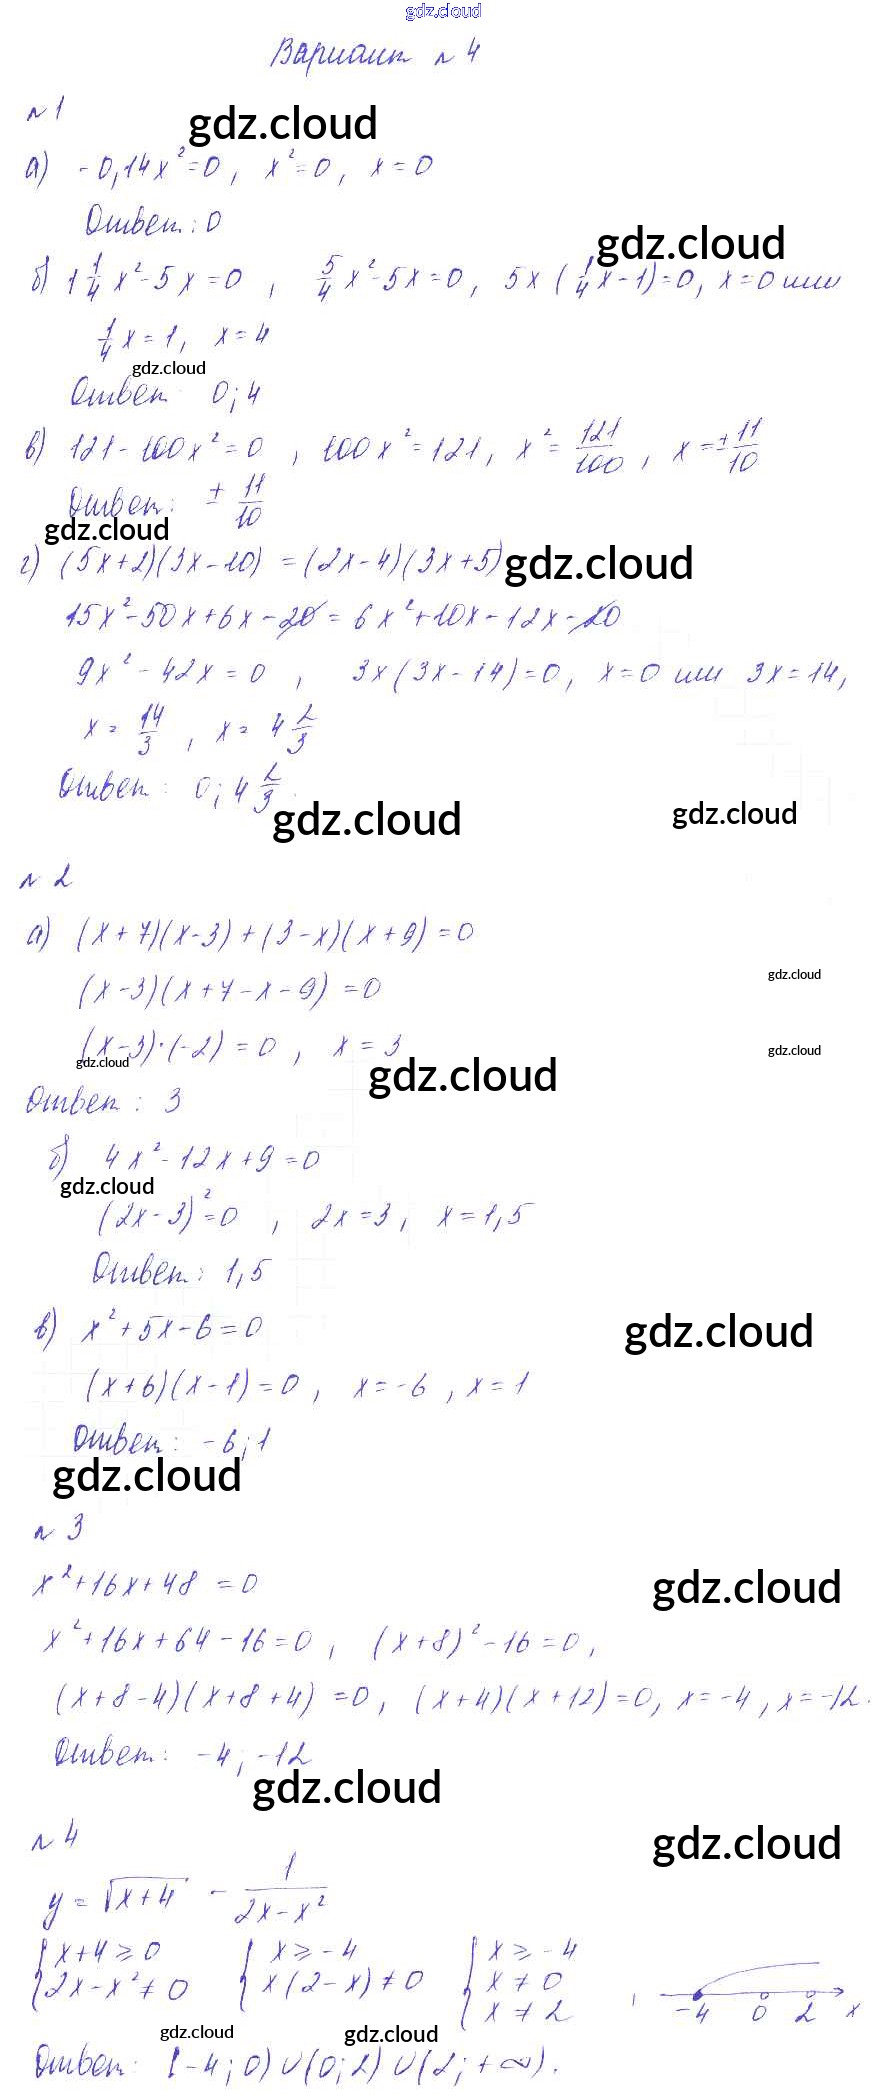 gdz.cloud
Вариант n 4
n 1
gdz.cloud
а) -0,14x²=0, x²=0, x=0
Ответ: 0
gdz.cloud
б) 1 1/4 x²-5x=0, 5/4 x²-5x=0, 5x(1/4 x-1)=0, x=0 или
1/4 x=1, x=4
gdz.cloud
Ответ 0; 4
в) 121-100x²=0, 100x²=121, x²=121/100, x=±11/10
Ответ: ± 11/10
gdz.cloud
г) (5x+2)(3x-10) =(2x-4)(3x+5)
gdz.cloud
15x²-50x+6x-20=6x²+10x-12x-20
9x²-42x=0, 3x(3x-14)=0, x=0 или 3x=14,
x=14/3, x=4 2/3
Ответ: 0; 4 2/3.
gdz.cloud gdz.cloud
n 2
а) (x+7)(x-3)+(3-x)(x+9)=0
gdz.cloud
(x-3)(x+7-x-9)=0
(x-3)·(-2)=0, x=3
gdz.cloud
gdz.cloud gdz.cloud
Ответ: 3
б) 4x²-12x+9=0
gdz.cloud
(2x-3)²=0, 2x=3, x=1,5
Ответ: 1,5
в) x²+5x-6=0
gdz.cloud
(x+6)(x-1)=0, x=-6, x=1
Ответ: -6; 1
gdz.cloud
n 3
x²+16x+48=0
gdz.cloud
x²+16x+64-16=0, (x+8)²-16=0,
(x+8-4)(x+8+4)=0, (x+4)(x+12)=0, x=-4, x=-12.
Ответ: -4; -12
gdz.cloud
n 4
gdz.cloud
y=√x+4 - 1/(2x-x²)
{x+4≥0 {x≥-4 {x≥-4
2x-x²≠0 x(2-x)≠0 x≠0
x≠2
, -4 0 2 x
gdz.cloud gdz.cloud
Ответ: [-4; 0)∪(0; 2)∪(2; +∞).